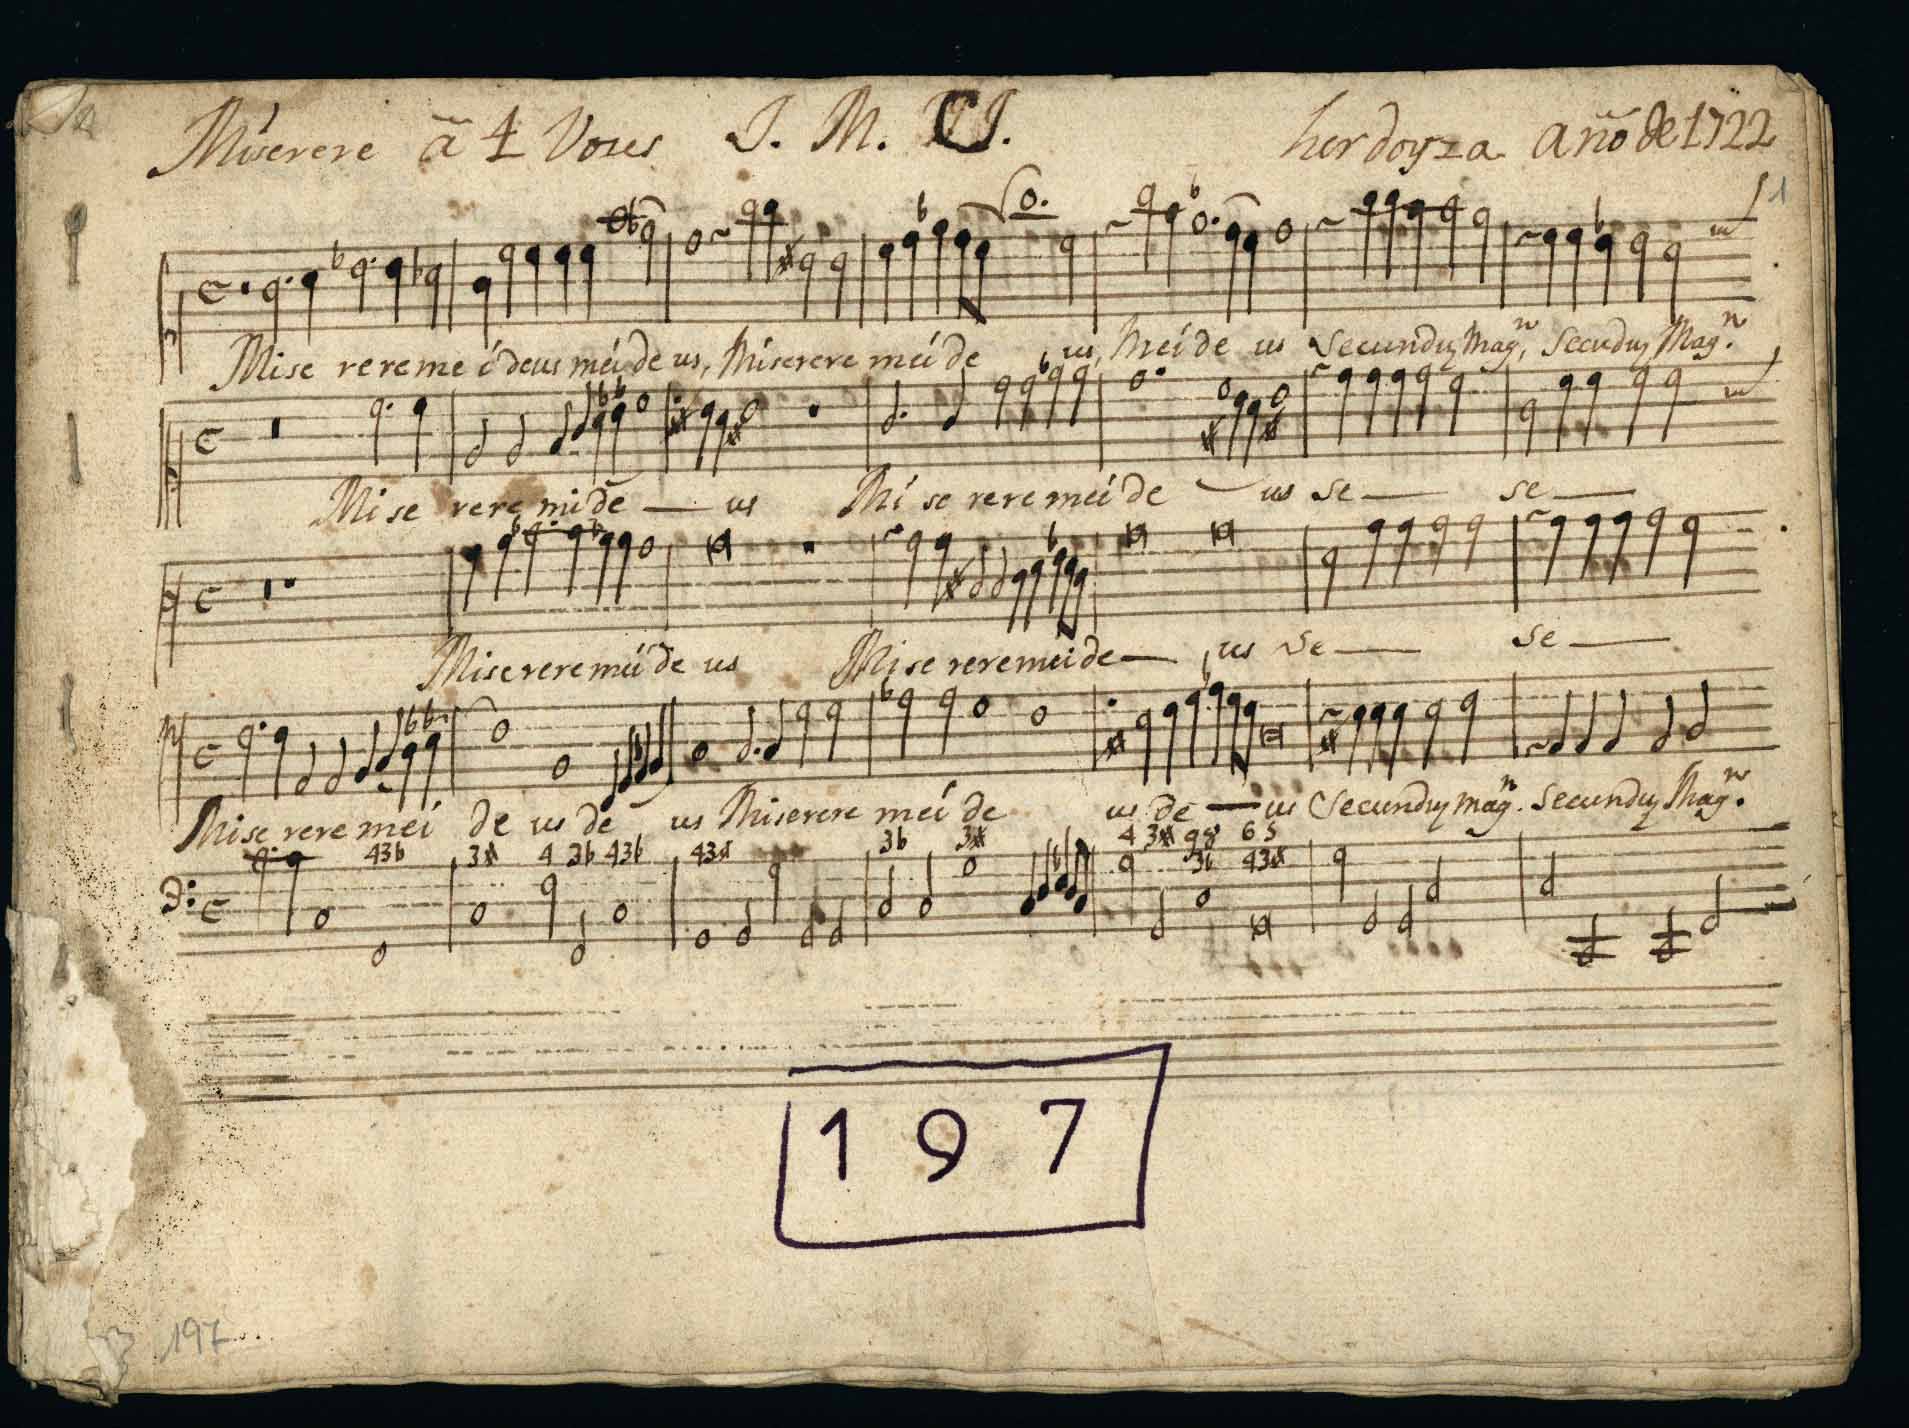 Miserere ã 4 Vozes J. M. J. herdoyza año de 1722
1
Mise rereme i deus mei de us, Miserere mei de us, Mei de us Secunduz Mag.n, Secuduz Mag.n
Mise rere mi de us Mi se rere mei de us se se
Misereremei de us Mise reremei de us Se Se
Mise rere mei de us de us Miserere mei de us de us Secunduz mag.n Secunduz Mag.n
43b 3# 4 3b 43b 43# 3b 3# 4 3# 98 65
3b 43#
197
197